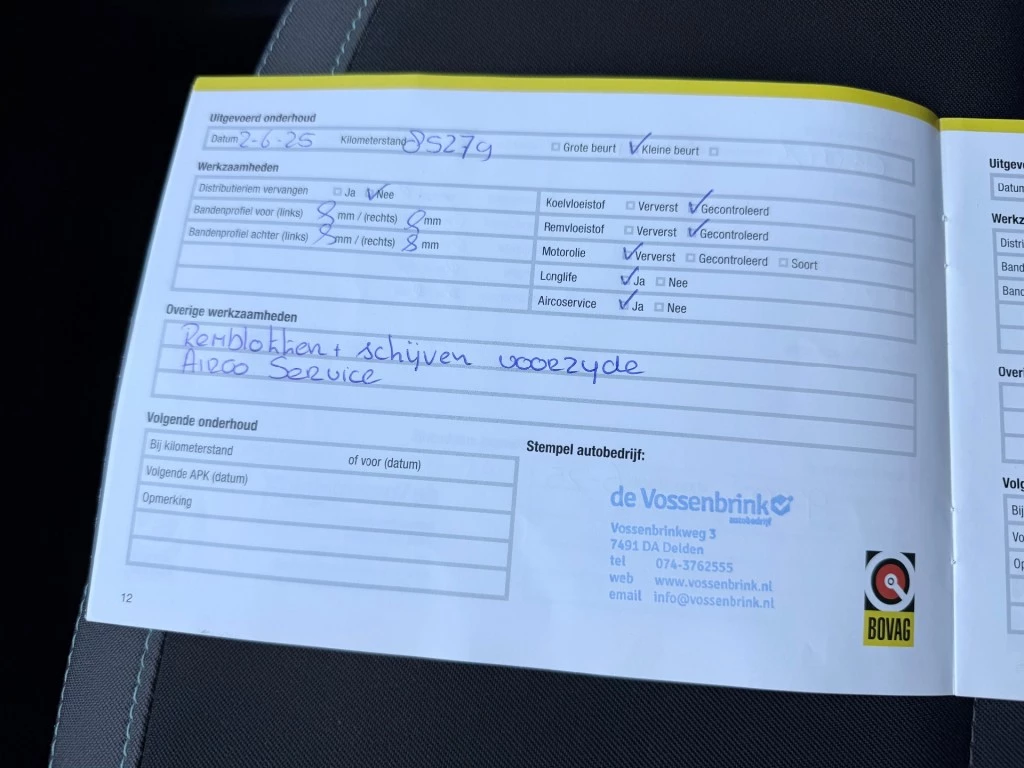 Uitgevoerd onderhoud
Datum 2-6-25 Kilometerstand 85279 Grote beurt Kleine beurt
Werkzaamheden
Distributieriem vervangen Ja Nee
Bandenprofiel voor (links) 8 mm / (rechts) 8 mm
Bandenprofiel achter (links) 8 mm / (rechts) 8 mm
Koelvloeistof Ververst Gecontroleerd
Remvloeistof Ververst Gecontroleerd
Motorolie Ververst Gecontroleerd Soort
Longlife Ja Nee
Aircoservice Ja Nee
Overige werkzaamheden
Remblokken + schijven voorzyde
AIRCO SERVICE
Volgende onderhoud
Bij kilometerstand of voor (datum)
Volgende APK (datum)
Opmerking
Stempel autobedrijf:
de Vossenbrink
autobedrijf
Vossenbrinkweg 3
7491 DA Delden
tel 074-3762555
web www.vossenbrink.nl
email info@vossenbrink.nl
BOVAG
12
Uitgev
Datun
Werkz
Distri
Band
Banc
Overi
Volg
Bij
Vo
Op